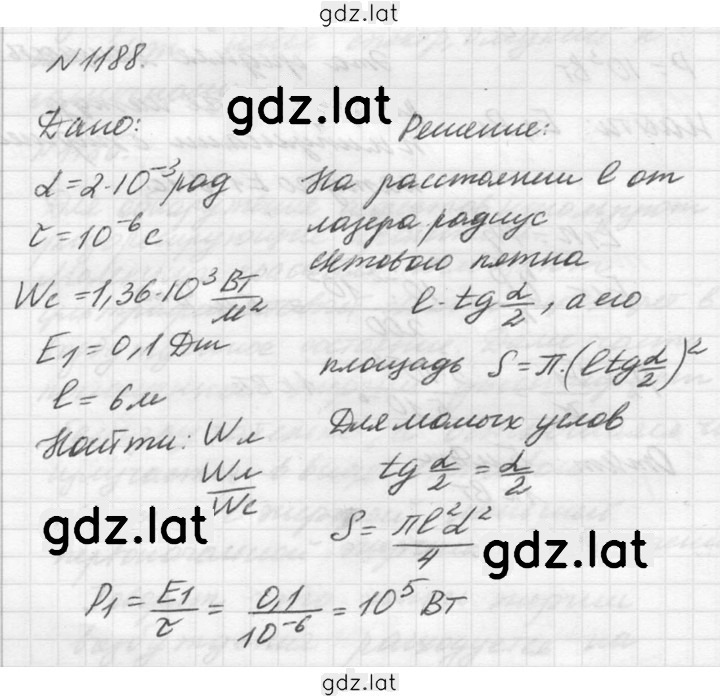 gdz.lat
N1188.
gdz.lat
Дано:
α = 2·10⁻³ рад
τ = 10⁻⁶ с
Wс = 1,36·10³ Вт/м²
E₁ = 0,1 Дж
l = 6 м
Найти: Wл
Wл/Wс
Решение:
На расстоянии l от
лазера радиус
светового пятна
l·tg α/2, а его
площадь S = π·(l tg α/2)²
Для малых углов
tg α/2 = α/2
S = πl²α²/4
gdz.lat
gdz.lat
P₁ = E₁/τ = 0,1/10⁻⁶ = 10⁵ Вт
gdz.lat